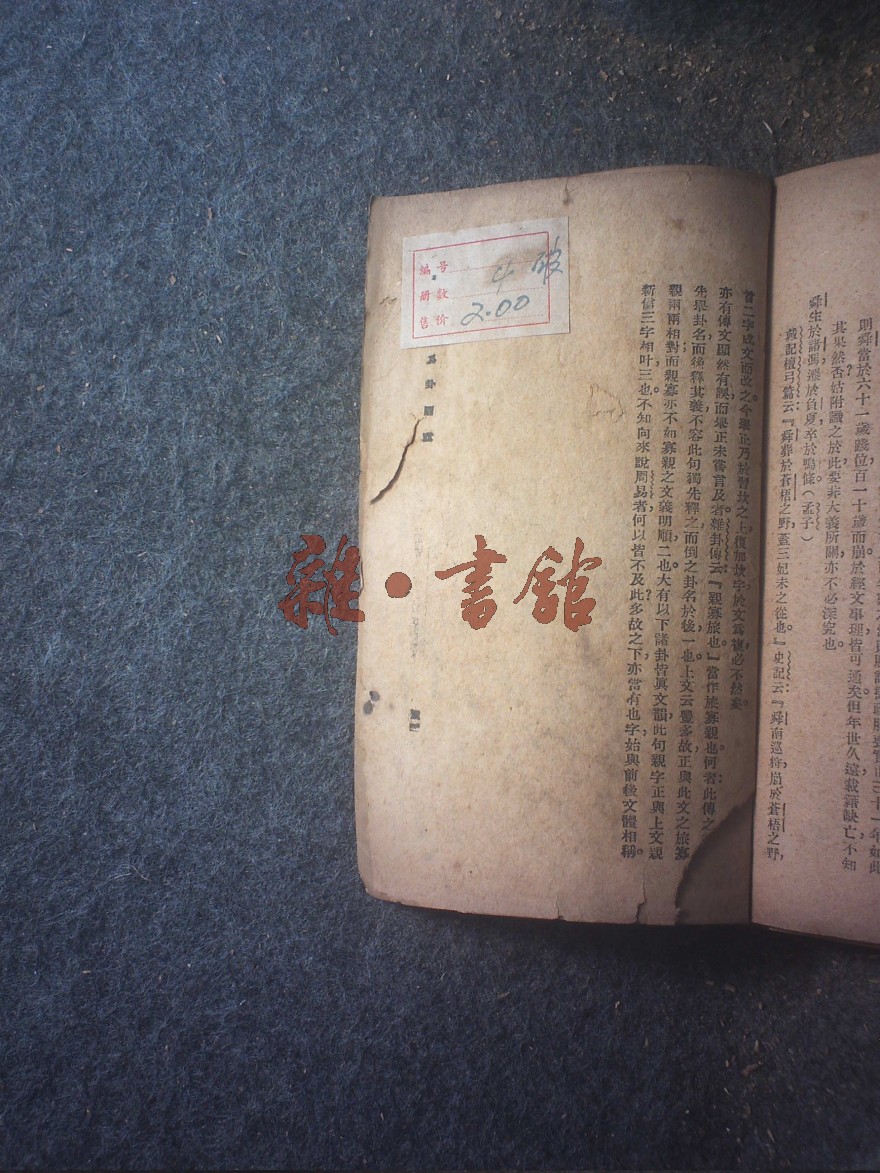 其果然否姑附識之於此要非大義所關亦不必深究也
舜生於諸馮遷於負夏卒於鳴條(孟子)
戴記檀弓篇云『舜葬於蒼梧之野蓋三妃未之從也。』史記云『舜南巡狩崩於蒼梧之野,
首二字成文而改之今舉正乃於習坎之上復加坎字於文為複必不然矣
亦有傳文顯然有誤而舉正未嘗言及者雜卦傳云『親寡旅也。』當作旅寡親也何者此傳之
先舉卦名而後釋其義不容此句獨先釋之而倒之卦名於後一也上文云豐多故正與此文之旅寡
親兩兩相對而親寡亦不如寡親之文義明順二也大有以下諸卦皆眞文韻此句親字正與上文親
新信三字相叶三也不知向來說周易者何以皆不及此多故之下亦當有也字始與前後文體相稱。
编号
册数 4 破
售价 2.00
雜·書館